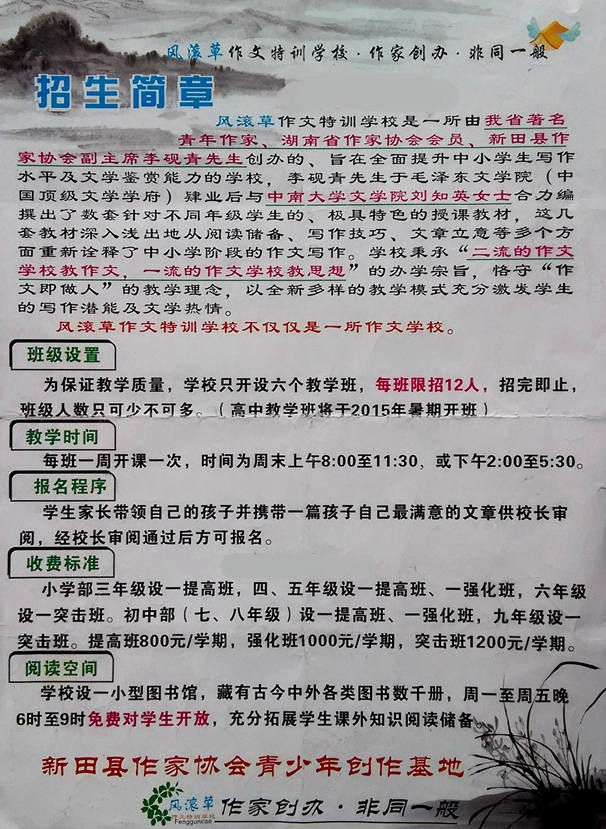 风滚草作文特训学校·作家创办·非同一般
招生简章
风滚草作文特训学校是一所由我省著名
青年作家、湖南省作家协会会员、新田县作
家协会副主席李砚青先生创办的、旨在全面提升中小学生写作
水平及文学鉴赏能力的学校，李砚青先生于毛泽东文学院（中
国顶级文学学府）肄业后与中南大学文学院刘知英女士合力编
撰出了数套针对不同年级学生的、极具特色的授课教材，这几
套教材深入浅出地从阅读储备、写作技巧、文章立意等多个方
面重新诠释了中小学阶段的作文写作。学校秉承“二流的作文
学校教作文，一流的作文学校教思想”的办学宗旨，恪守“作
文即做人”的教学理念，以全新多样的教学模式充分激发学生
的写作潜能及文学热情。
风滚草作文特训学校不仅仅是一所作文学校。
班级设置
为保证教学质量，学校只开设六个教学班，每班限招12人，招完即止，
班级人数只可少不可多。（高中教学班将于2015年暑期开班）
教学时间
每班一周开课一次，时间为周末上午8:00至11:30，或下午2:00至5:30。
报名程序
学生家长带领自己的孩子并携带一篇孩子自己最满意的文章供校长审
阅，经校长审阅通过后方可报名。
收费标准
小学部三年级设一提高班，四、五年级设一提高班、一强化班，六年级
设一突击班。初中部（七、八年级）设一提高班、一强化班，九年级设一
突击班。提高班800元/学期，强化班1000元/学期，突击班1200元/学期。
阅读空间
学校设一小型图书馆，藏有古今中外各类图书数千册，周一至周五晚
6时至9时免费对学生开放，充分拓展学生课外知识阅读储备。
新田县作家协会青少年创作基地
风滚草 作家创办·非同一般
作文特训学校
Fengguncao